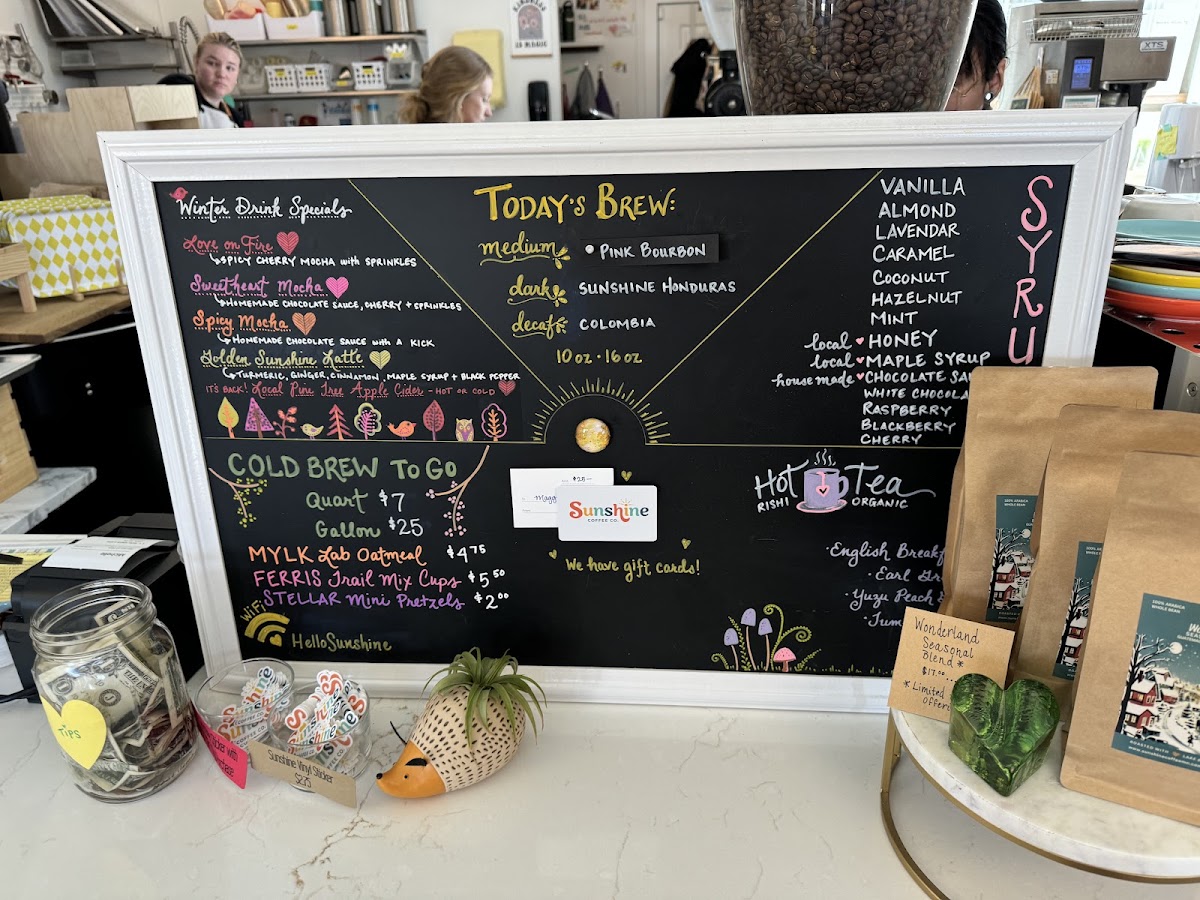 Winter Drink Specials
Love on Fire
SPICY CHERRY MOCHA with SPRINKLES
Sweetheart Mocha
HOMEMADE CHOCOLATE SAUCE, CHERRY + SPRINKLES
Spicy Mocha
HOMEMADE CHOCOLATE SAUCE with A KICK
Golden Sunshine Latte
TURMERIC, GINGER, CINNAMON, MAPLE SYRUP + BLACK PEPPER
IT'S BACK! Local Pine Tree Apple Cider - HOT or COLD
TODAY'S BREW:
medium PINK BOURBON
dark SUNSHINE HONDURAS
decaf COLOMBIA
10 oz · 16 oz
VANILLA
ALMOND
LAVENDAR
CARAMEL
COCONUT
HAZELNUT
MINT
local HONEY
local MAPLE SYRUP
house made CHOCOLATE SA
WHITE CHOCOLA
RASPBERRY
BLACKBERRY
CHERRY
SYRU
COLD BREW TO GO
Quart $7
Gallon $25
MYLK Lab Oatmeal $4.75
FERRIS Trail Mix Cups $5.50
STELLAR Mini Pretzels $2.00
WiFi
HelloSunshine
$25
Sunshine
COFFEE CO.
We have gift cards!
Hot Tea
RISHI ORGANIC
·English Breakf
·Earl Gr
·Yuzu Peach
Wonderland
Seasonal
Blend *
$17.00
*Limited
Offer
100% ARABICA
WHOLE BEAN
100% ARABICA
WHOLE BEAN
100% ARABICA
WHOLE BEAN
Tips
Sunshine Vinyl Sticker
XTS